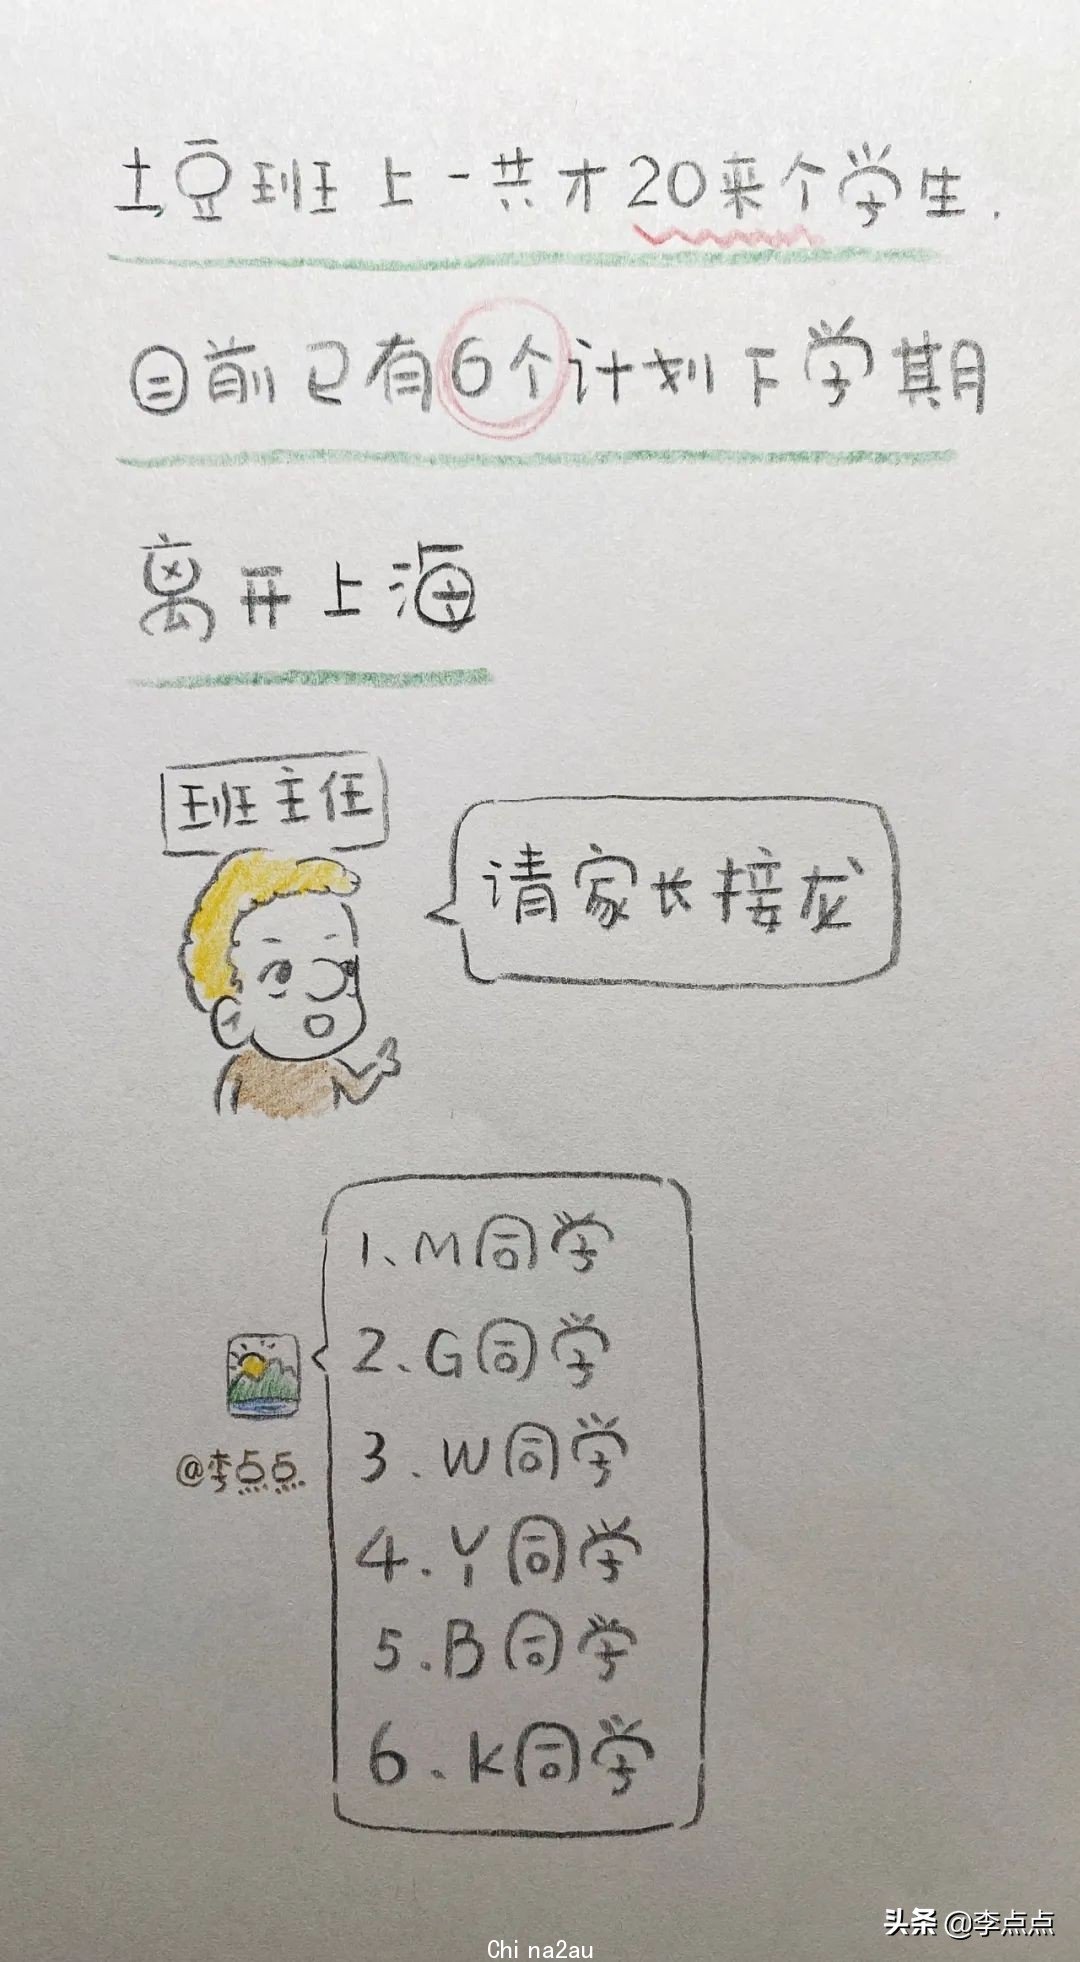 土豆班上一共才20来个学生.
目前已有6个计划下学期
离开上海
班主任
请家长接龙
1、M同学
2、G同学
3.W同学
4.Y同学
5.B同学
6.K同学
@李点点
头条 @李点点
China2au